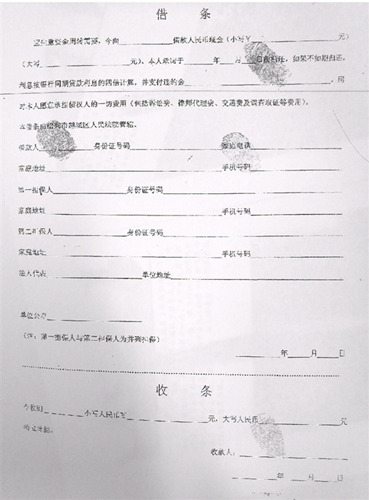 借 条
因 资金周转需要，今向 借款人民币现金（小写￥ 元）
（大写 元），本人承诺于 年 月 日 归还，如果不如期归还，
利息按银行同期贷款利息的四倍计算，并支付违约金 ，
对本人愿意承担债权人的一切费用（包括诉讼费、律师代理费、交通费及调查取证等费用），
本借条由 市 城区人民法院管辖。
借款人 身份证号码 电话
家庭地址 手机号码
第一担保人 身份证号码
家庭地址 手机号码
第二担保人 身份证号码
家庭地址 手机号码
法人代表 单位地址
单位公章
（注：第一担保人与第二担保人为 担保）
年 月 日
收 条
今收到 小写人民币￥ 元，大写人民币 元
的
收款人：
年 月 日